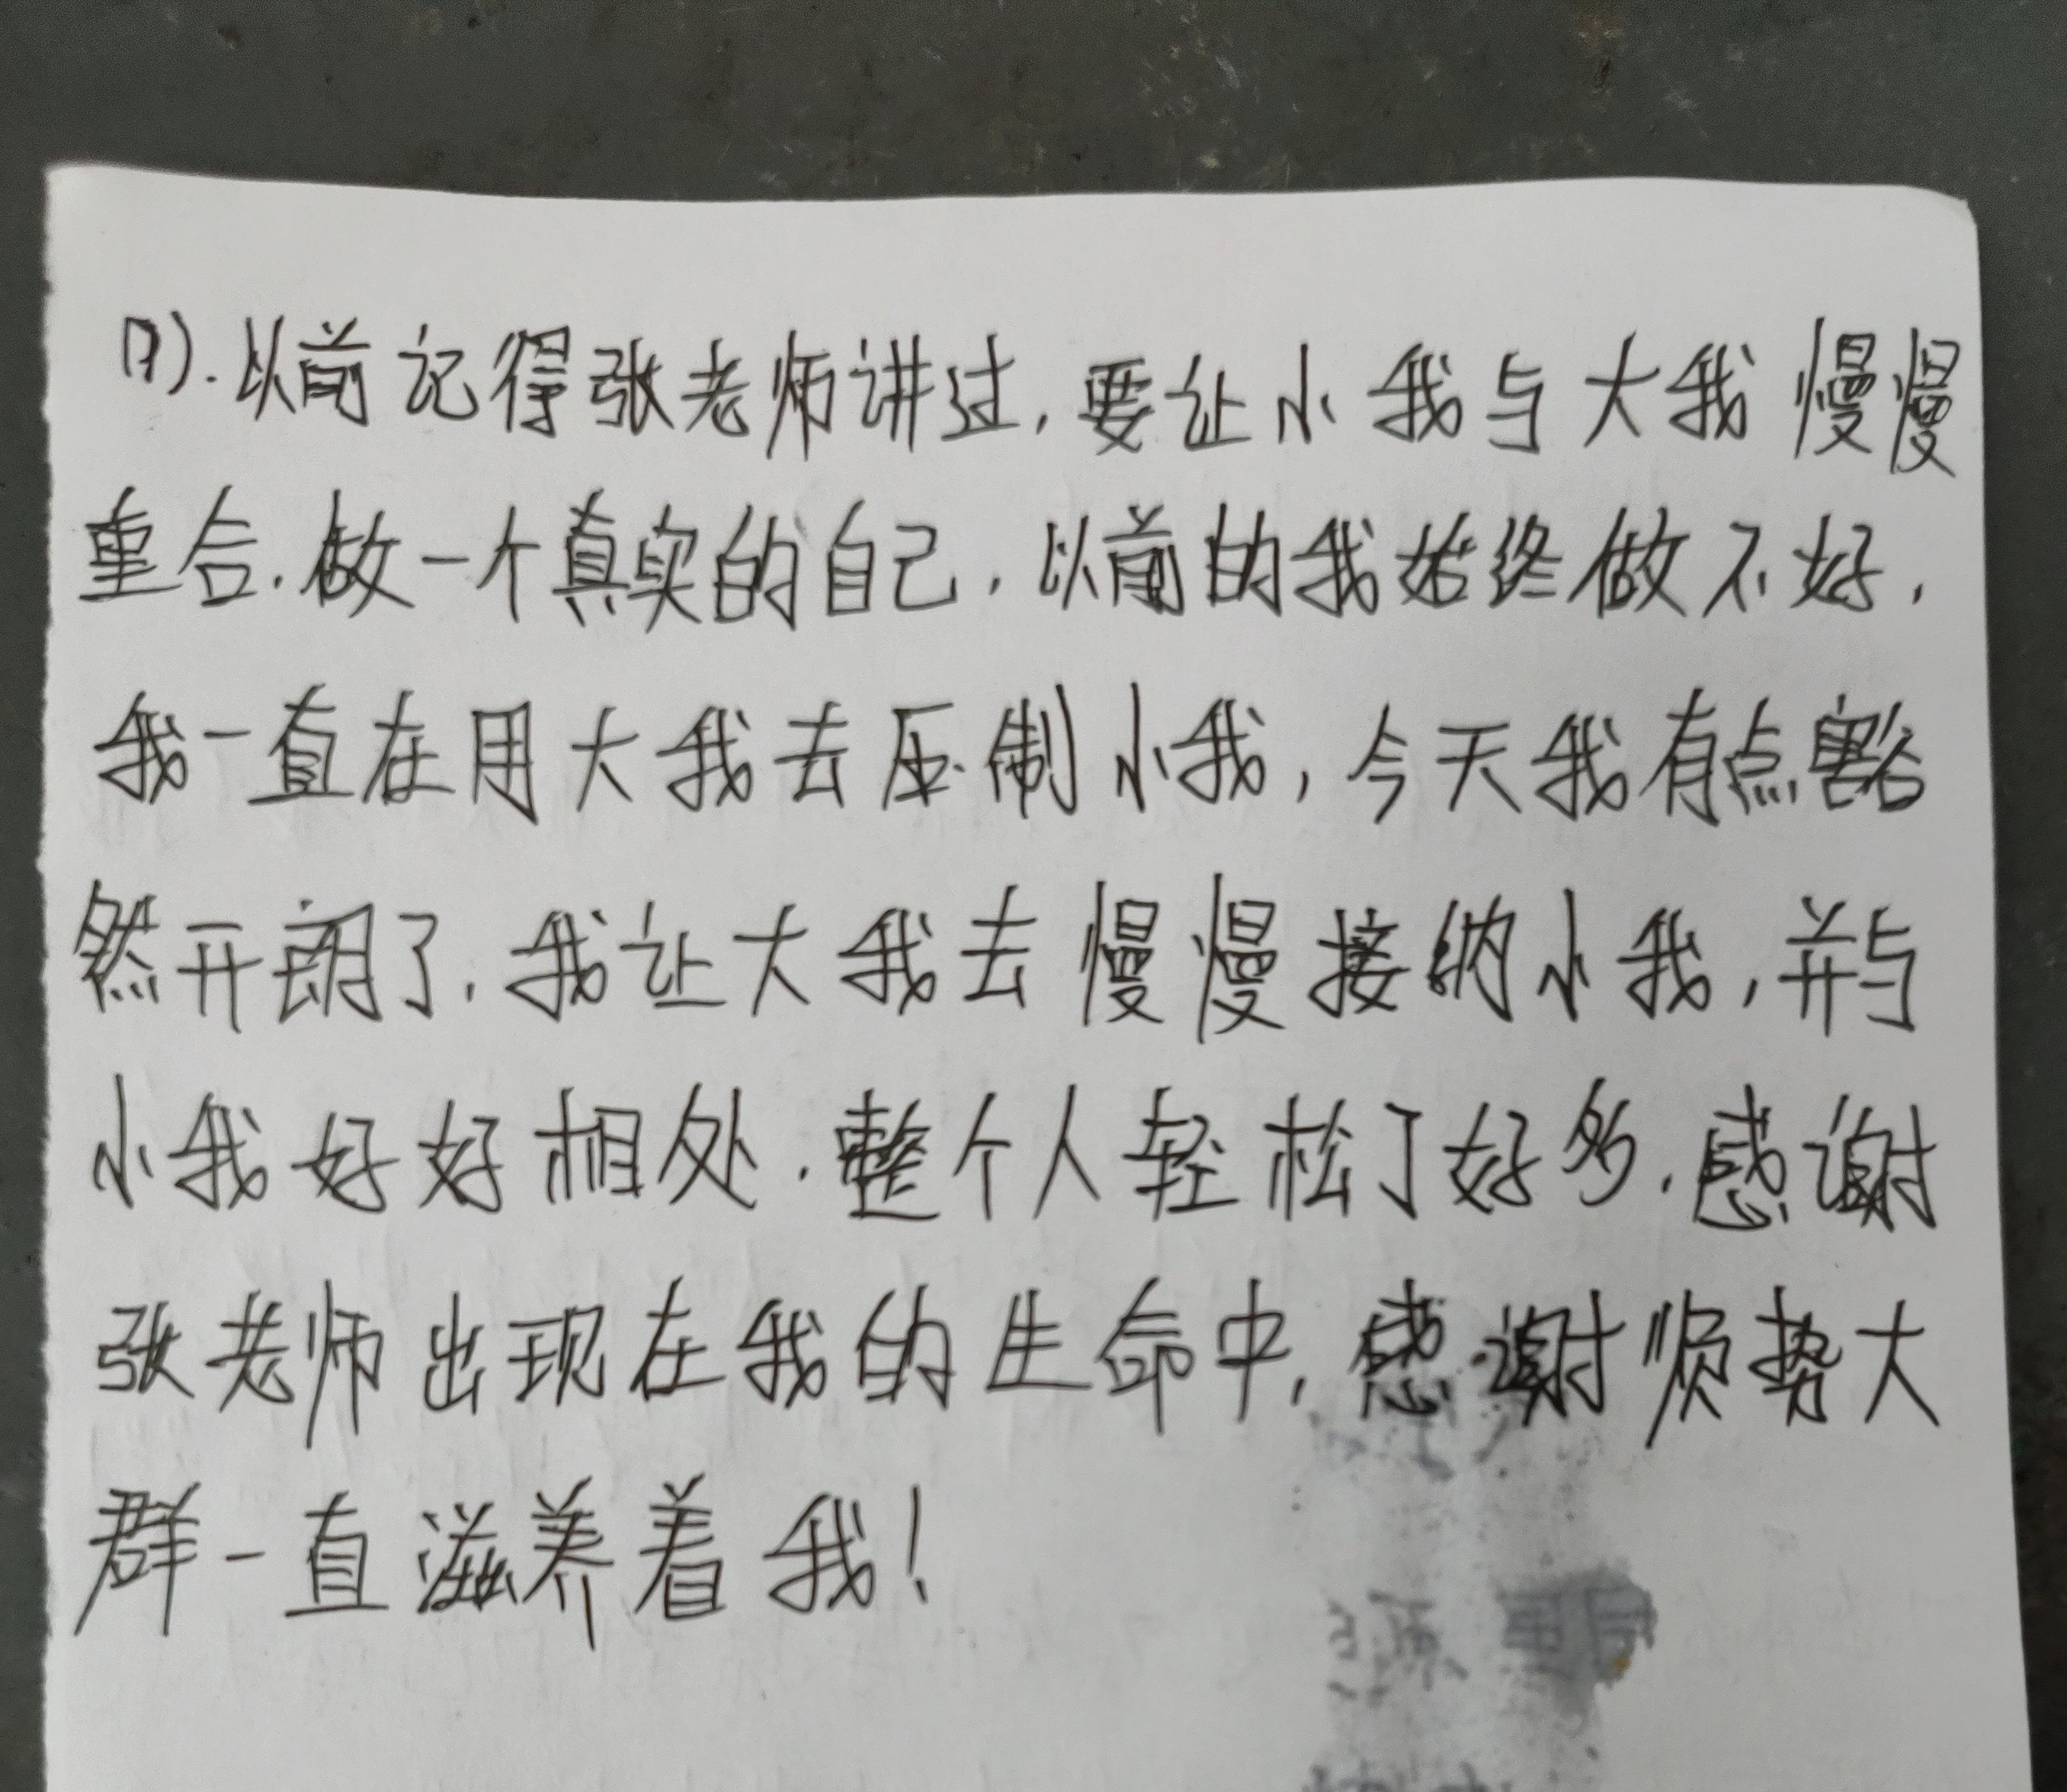 (7).以前记得张老师讲过,要让小我与大我慢慢
重合.做一个真实的自己.以前的我始终做不好,
我一直在用大我去压制小我,今天我有点豁
然开朗了.我让大我去慢慢接纳小我,并与
小我好好相处.整个人轻松了好多.感谢
张老师出现在我的生命中,感谢顺势大
群一直滋养着我!